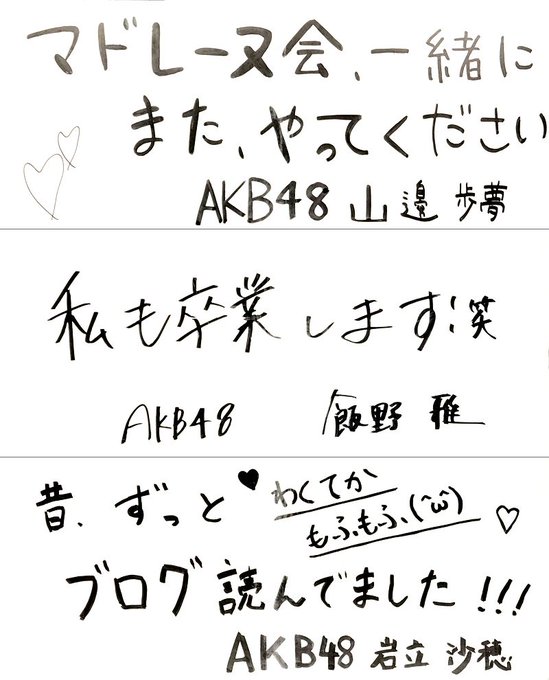 マドレーヌ会、一緒に
また、やってください
AKB48 山邊 歩夢
私も卒業します!笑
AKB48 飯野 雅
昔、ずっと
わくてか
もふもふ(^ω^)
ブログ読んでました!!!
AKB48 岩立 沙穂